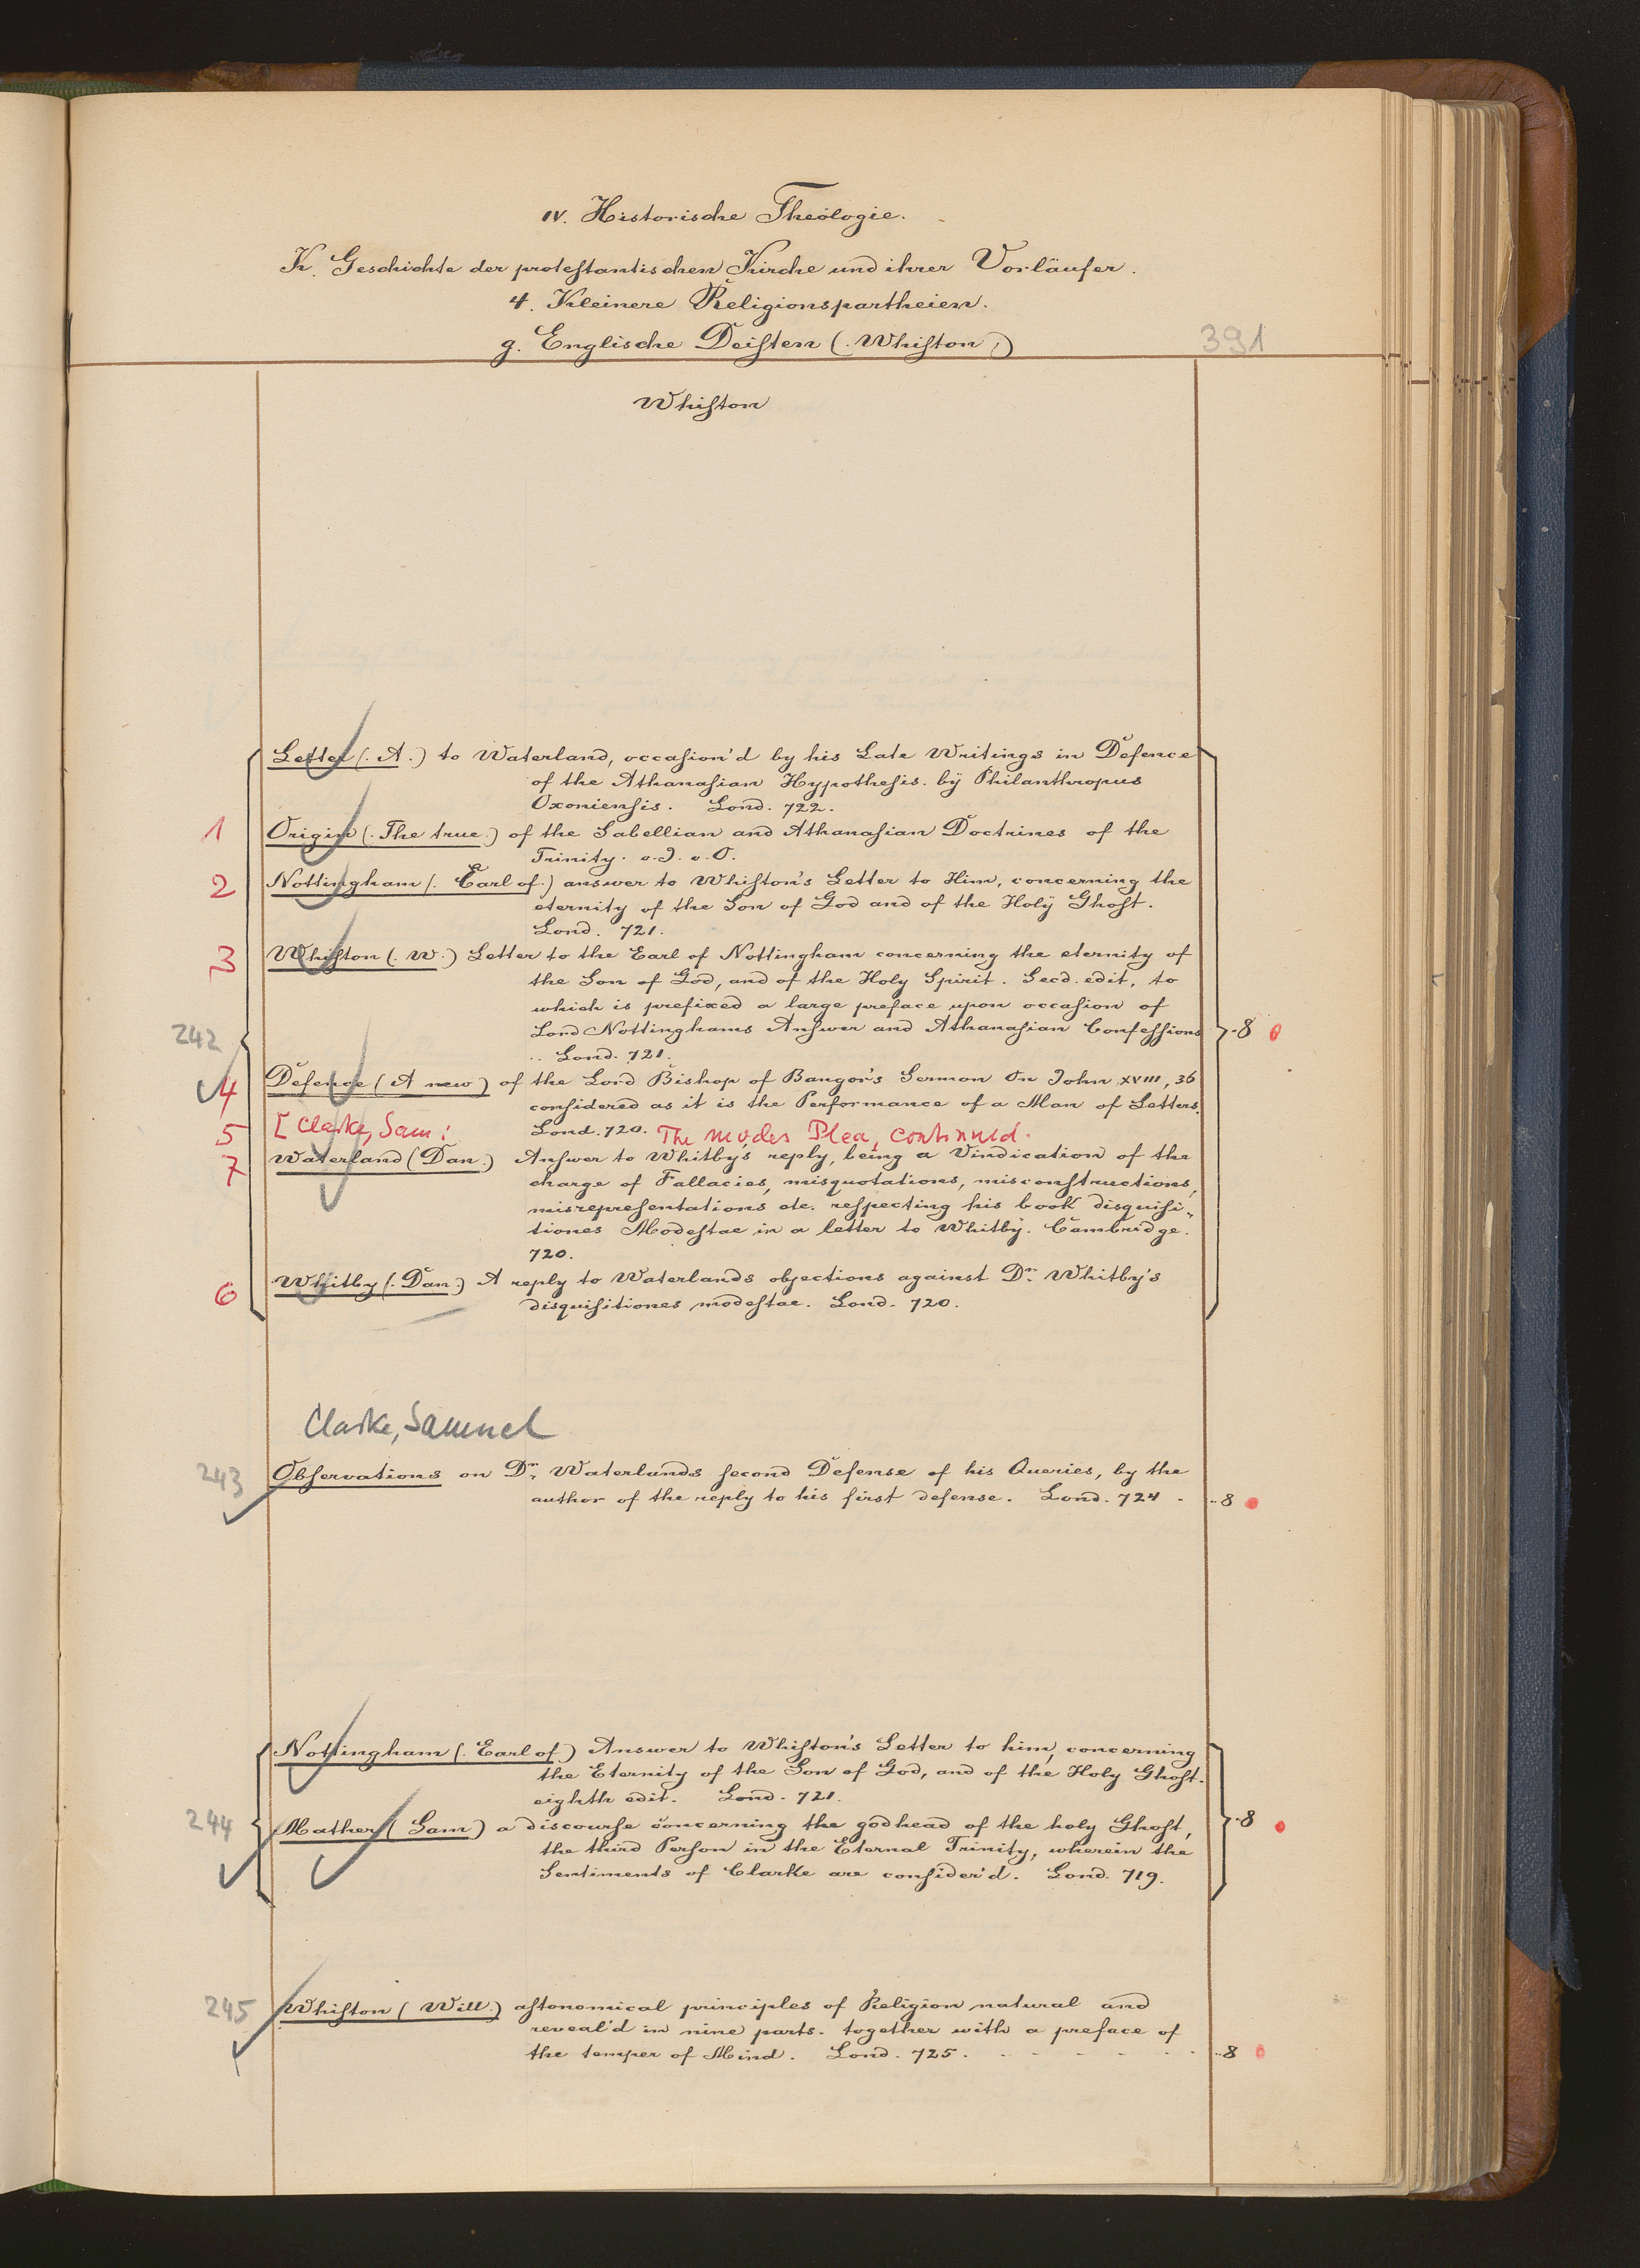 IV. Historische Theologie.
K. Geschichte der protestantischen Kirche und ihrer Vorläufer.
4. Kleinere Religionspartheien.
g. Englische Deisten (. Whiston.)
391
Whiston
Letter (. A.) to Waterland, occasion'd by his Late Writings in Defence
of the Athanasian Hypothesis. by Philanthropus
Oxoniensis. Lond. 722.
1 Origin (. The true.) of the Sabellian and Athanasian Doctrines of the
Trinity. o. J. o. O.
2 Nottingham (. Earl of.) answer to Whiston's Letter to Him, concerning the
eternity of the Son of God and of the Holy Ghost.
Lond. 721.
3 Whiston (. W.) Letter to the Earl of Nottingham concerning the eternity of
the Son of God, and of the Holy Spirit. Secd. edit. to
which is prefixed a large preface upon occasion of
242 Lord Nottinghams Answer and Athanasian Confessions .8
.. Lond. 721.
4 Defence (. A new.) of the Lord Bishop of Bangor's Sermon On John XVIII, 36
considered as it is the Performance of a Man of Letters.
Lond. 720.
5 [Clarke, Sam: The modes Plea, continued.
7 Waterland (Dan.) Answer to Whitby's reply, being a Vindication of the
charge of Fallacies, misquotations, misconstructions,
misrepresentations etc. respecting his book disquisi-
tiones Modestae in a letter to Whitby. Cambridge.
720.
6 Whitby (. Dan.) A reply to Waterlands objections against Dr. Whitby's
disquisitiones modestae. Lond. 720.
Clarke, Samuel
243 Observations on Dr. Waterlands second Defense of his Queries, by the
author of the reply to his first defense. Lond. 724 . ..8
Nottingham (. Earl of.) Answer to Whiston's Letter to him, concerning
the Eternity of the Son of God, and of the Holy Ghost.
eighth edit. Lond. 721.
244 Mather (Sam) a discourse concerning the godhead of the holy Ghost, .8
the third Person in the Eternal Trinity, wherein the
Sentiments of Clarke are consider'd. Lond. 719.
245 Whiston (Will.) astonomical principles of Religion natural and
reveal'd in nine parts. together with a preface of
the temper of Mind. Lond. 725. . . . . . . ..8